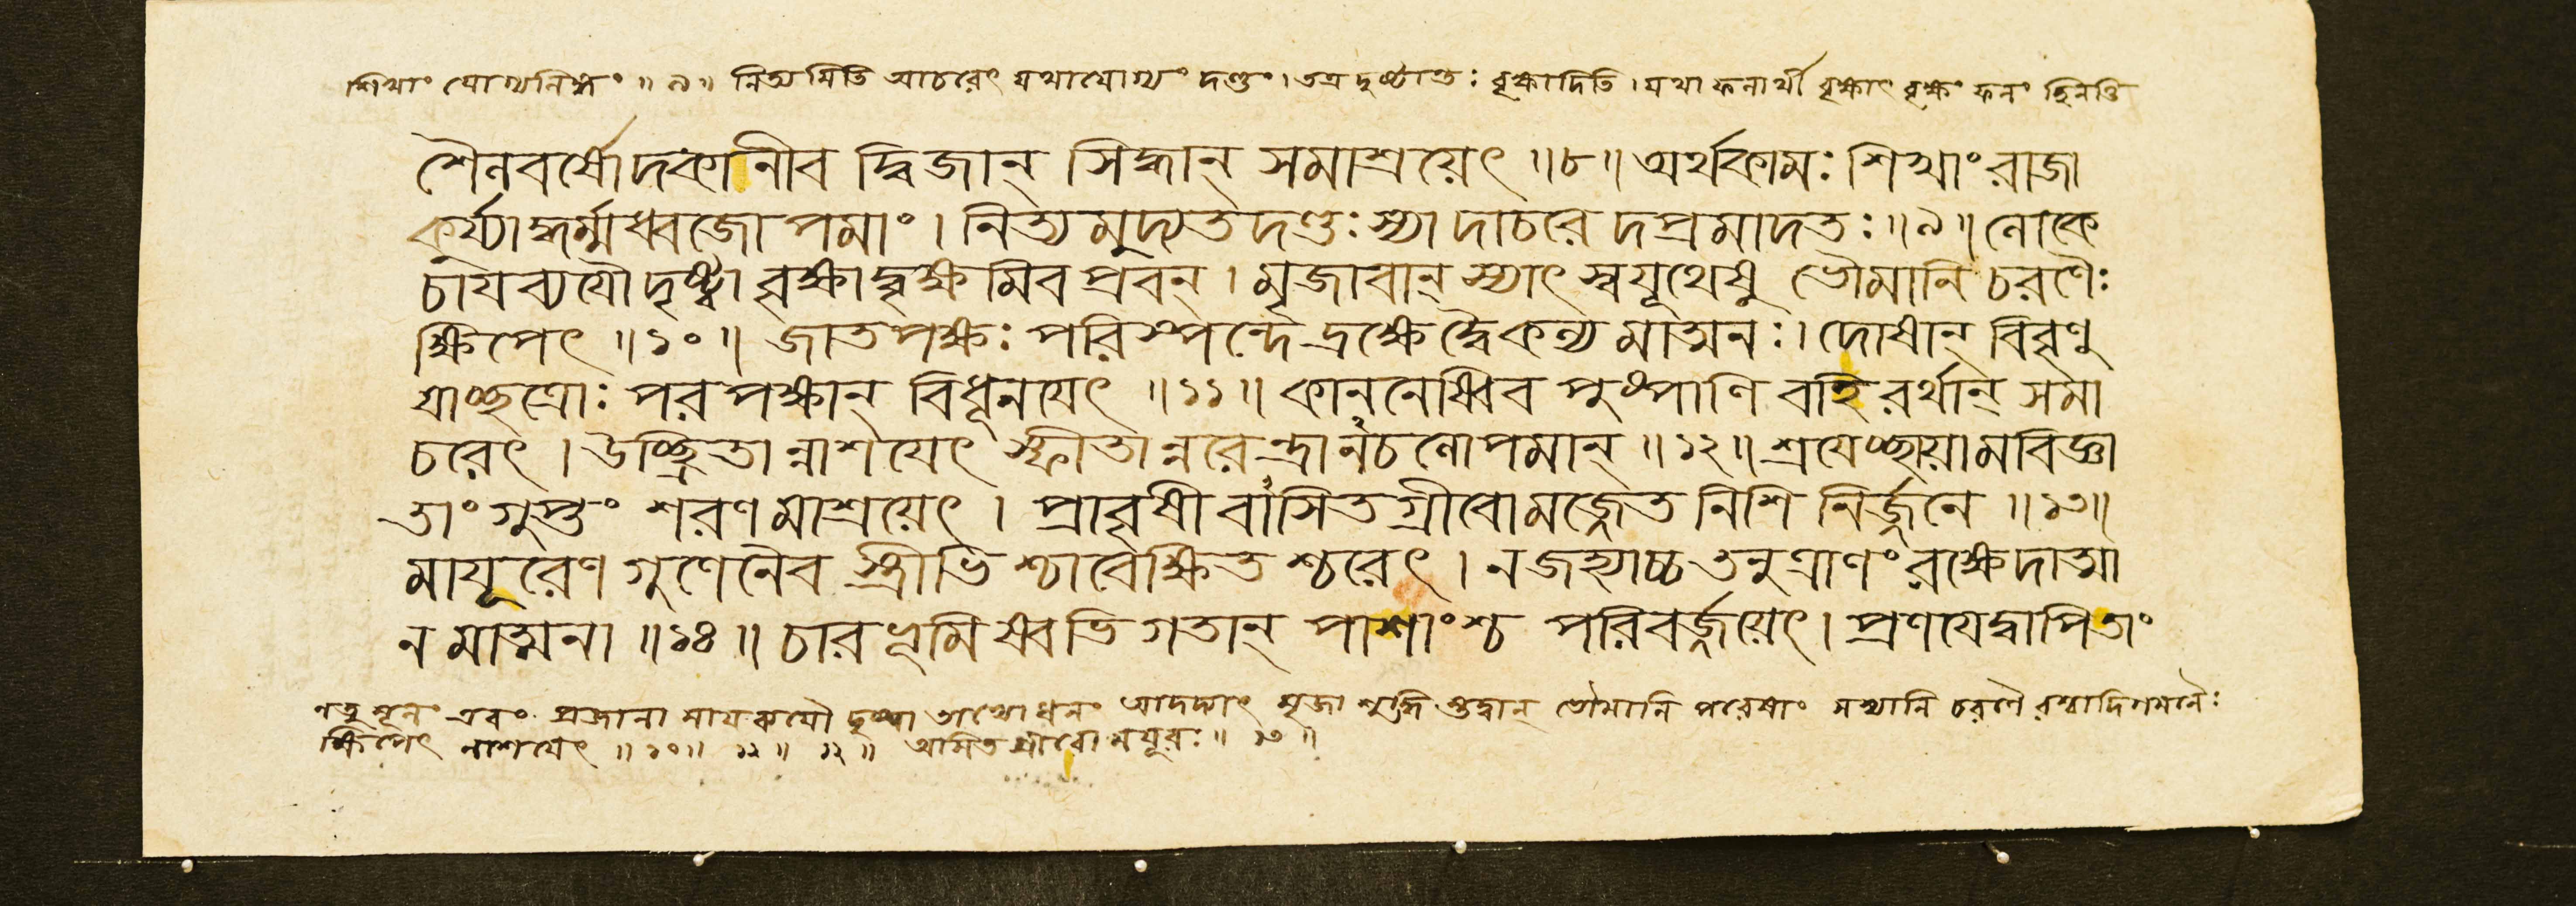 শিখাং যোগ্যনিষ্ঠং ॥ ৯ ॥ নিত্যমিতি আচরেৎ যথাযোগ্যং দণ্ডং । তত্র দৃষ্টান্তঃ বৃক্ষাদিতি । যথা ফলার্থী বৃক্ষাৎ বৃক্ষং ফলং
শৈলবর্ষোদকানীব দ্বিজান্ সিদ্ধান্ সমাশ্রয়েৎ ॥ ৮ ॥ অর্থকামঃ শিখাং রাজা
কুর্য্যাদ্ধর্ম্মধ্বজোপমাং । নিত্যমুদ্যতদণ্ডঃ স্যাদাচরেদপ্রমাদতঃ ॥ ৯ ॥ লোকে
চায়ব্যয়ৌ দৃষ্ট্বা বৃক্ষাদ্বৃক্ষমিবপ্লবন্ । মৃজাবান্ স্যাৎ স্বযূথেষু ভৌমানি চরণৈঃ
ক্ষিপেৎ ॥ ১০ ॥ জাতপক্ষঃ পরিস্পন্দে দ্রক্ষেদ্বৈকল্যমাত্মনঃ । দোষান্ বিবৃণু
য়াচ্ছত্রোঃ পরপক্ষান্ বিধূনয়েৎ ॥ ১১ ॥ কাননেষ্বিব পুষ্পাণি বহিরর্থান্ সমা
চরেৎ । উচ্ছ্রিতান্নাশয়েৎ স্ফীতান্নরেন্দ্রানচলোপমান্ ॥ ১২ ॥ শ্রয়েচ্ছায়ামবিজ্ঞা
তাং গুপ্তং শরণমাশ্রয়েৎ । প্রাবৃষীবাসিতগ্রীবো মজ্জেত নিশি নির্জ্জনে ॥ ১৩ ॥
মায়ূরেণ গুণেনৈব স্ত্রীভিশ্চাবেক্ষিতশ্চরেৎ । ন জহ্যাচ্চ তনুত্রাণং রক্ষেদাত্মা
নমাত্মনা ॥ ১৪ ॥ চারভূমিষ্বভিগতান্ পাশাংশ্চ পরিবর্জ্জয়েৎ । প্রণয়েদ্বাপিতাং
নতু মূলং এবং প্রজানা মায়ব্যয়ৌ দৃষ্ট্বা তাভ্যো ধনং আদদ্যাৎ মৃজা শুদ্ধি ভৌমানি পরেষাং শস্যানি চরণৈ রশ্বাদিগমনৈঃ
ক্ষিপেৎ নাশয়েৎ ॥ ১০ ॥ ১১ ॥ ১২ ॥ অসিতগ্রীবো ময়ূরঃ ॥ ১৩ ॥